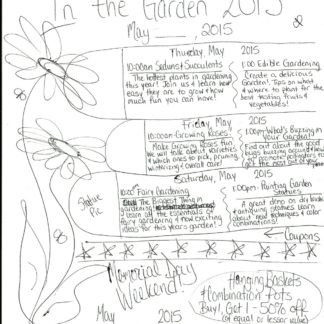 In the Garden 2015
May ___, 2015
Thursday, May 2015
10:00am Sedums & Succulents
The hottest plants in gardening
this year! Join us & learn how
easy they are to grow & how
much fun you can have!
1:00 Edible Gardening
Create a delicious
Garden! Tips on what
& where to plant for the
best tasting fruits &
vegetables!
Friday, May 2015
10:00am-Growing Roses!
Make Growing Roses fun.
We will talk about varieties
which ones to pick, pruning,
wintering & overall care!
1:00pm-What's Buzzing in
Your Garden!
Find out about the good
bugs buzzing around & how
to promote pollinators to
get the most out of your
Saturday, May 2015
10:00 Fairy Gardening
The Biggest Thing in
gardening
Learn all the essentials of
fairy gardening & new exciting
ideas for this years garden!
1:00pm- Painting Garden
Statues
A great demo on dry brush
& antiquing statues. Learn
about new techniques & color
combinations!
Statue
Pic
Coupons
Memorial Day
Weekend
May 2015
Hanging Baskets
& Combination Pots
Buy 1, Get 1 - 50% off
(of equal or lesser value)